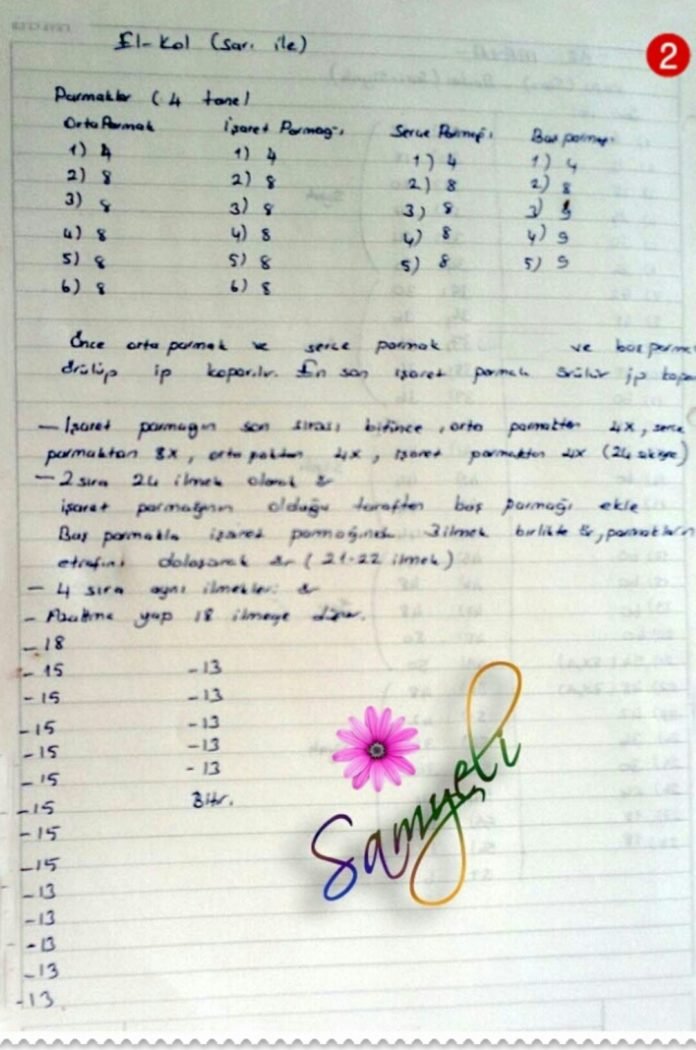 2
El-Kol (Sarı ile)
Parmaklar (4 tane)
Orta Parmak İşaret Parmağı Serçe Parmağı Baş parmağı
1) 4 1) 4 1) 4 1) 4
2) 8 2) 8 2) 8 2) 8
3) 8 3) 8 3) 8 3) 9
4) 8 4) 8 4) 8 4) 9
5) 8 5) 8 5) 8 5) 9
6) 8 6) 8
Önce orta parmak ve serçe parmak ve baş parmak
örülüp ip koparılır. En son işaret parmak örülür ip kopa
- İşaret parmağın son sırası bitince, orta parmaktan 4x, serçe
parmaktan 8x, orta 4x, işaret parmaktan 4x (24
- 2 sıra 24 ilmek olarak ör
işaret parmağının olduğu taraftan baş parmağı ekle
Baş parmakla işaret parmağının 3 ilmek birlikte ör, parmakların
etrafını dolaşarak ör (21-22 ilmek)
- 4 sıra aynı ilmekleri ör
- Azaltma yap 18 ilmeğe
- 18
- 15 - 13
- 15 - 13
- 15 - 13
- 15 - 13
- 15 - 13
- 15 Biter.
- 15
- 15
- 13
- 13
- 13
- 13
- 13
Samyeli